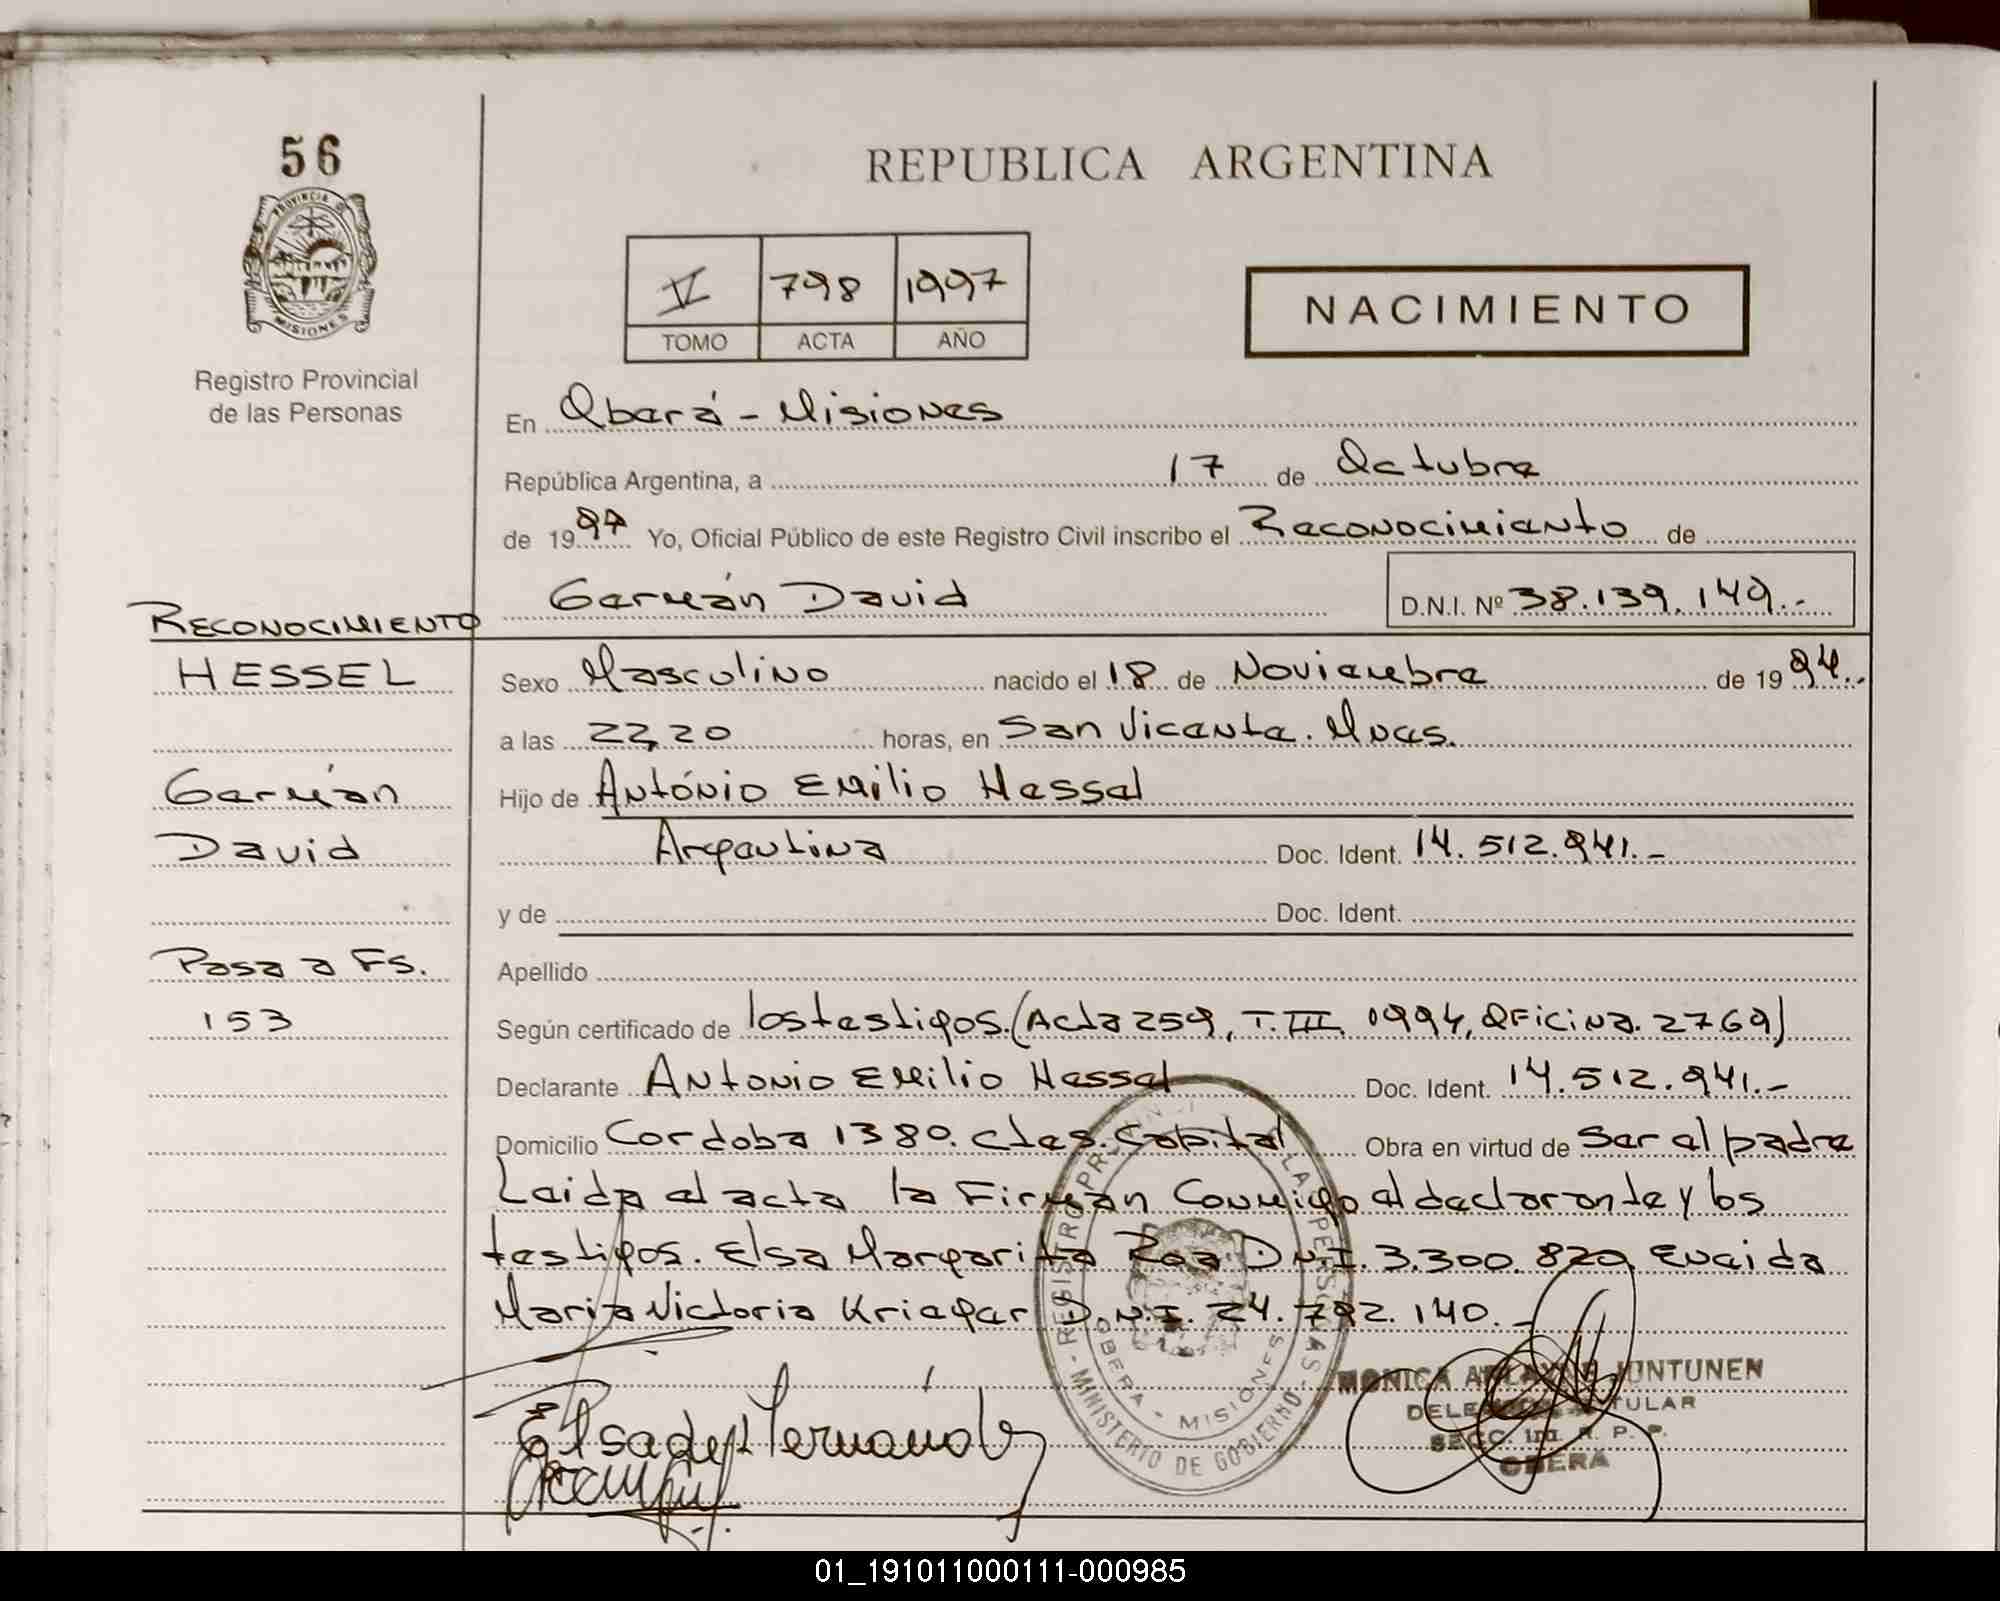 56
PROVINCIA DE
MISIONES
Registro Provincial
de las Personas
REPUBLICA ARGENTINA
V 798 1997
TOMO ACTA AÑO
NACIMIENTO
En Oberá - Misiones
República Argentina, a 17 de Octubre
de 1997 Yo, Oficial Público de este Registro Civil inscribo el Reconocimiento de
Germán David D.N.I. Nº 38.139.149.-
RECONOCIMIENTO
HESSEL
Germán
David
Pasa a Fs.
153
Sexo Masculino nacido el 18 de Noviembre de 1994.
a las 22,20 horas, en San Vicente. Mnes.
Hijo de António Emilio Hessel
Argentina Doc. Ident. 14.512.941.-
y de Doc. Ident.
Apellido
Según certificado de los testigos. (Acta 259, T. III. 1994, Oficina. 2769)
Declarante Antonio Emilio Hessel Doc. Ident. 14.512.941.-
Domicilio Cordoba 1380. Ctes. Capital Obra en virtud de Ser el padre
Leida el acta la Firman Conmigo el declarante y los
testigos. Elsa Margarita Roa D.N.I. 3.300.820. Eneida
Maria Victoria Krieger D.N.I. 24.792.140.-
REGISTRO PROVINCIAL DE LAS PERSONAS - MINISTERIO DE GOBIERNO -
OBERA - MISIONES
Elsa de Hernández
MONICA JUNTUNEN
DELEGADA TITULAR
SECC. 1ra. R. P. P.
OBERA
01_191011000111-000985